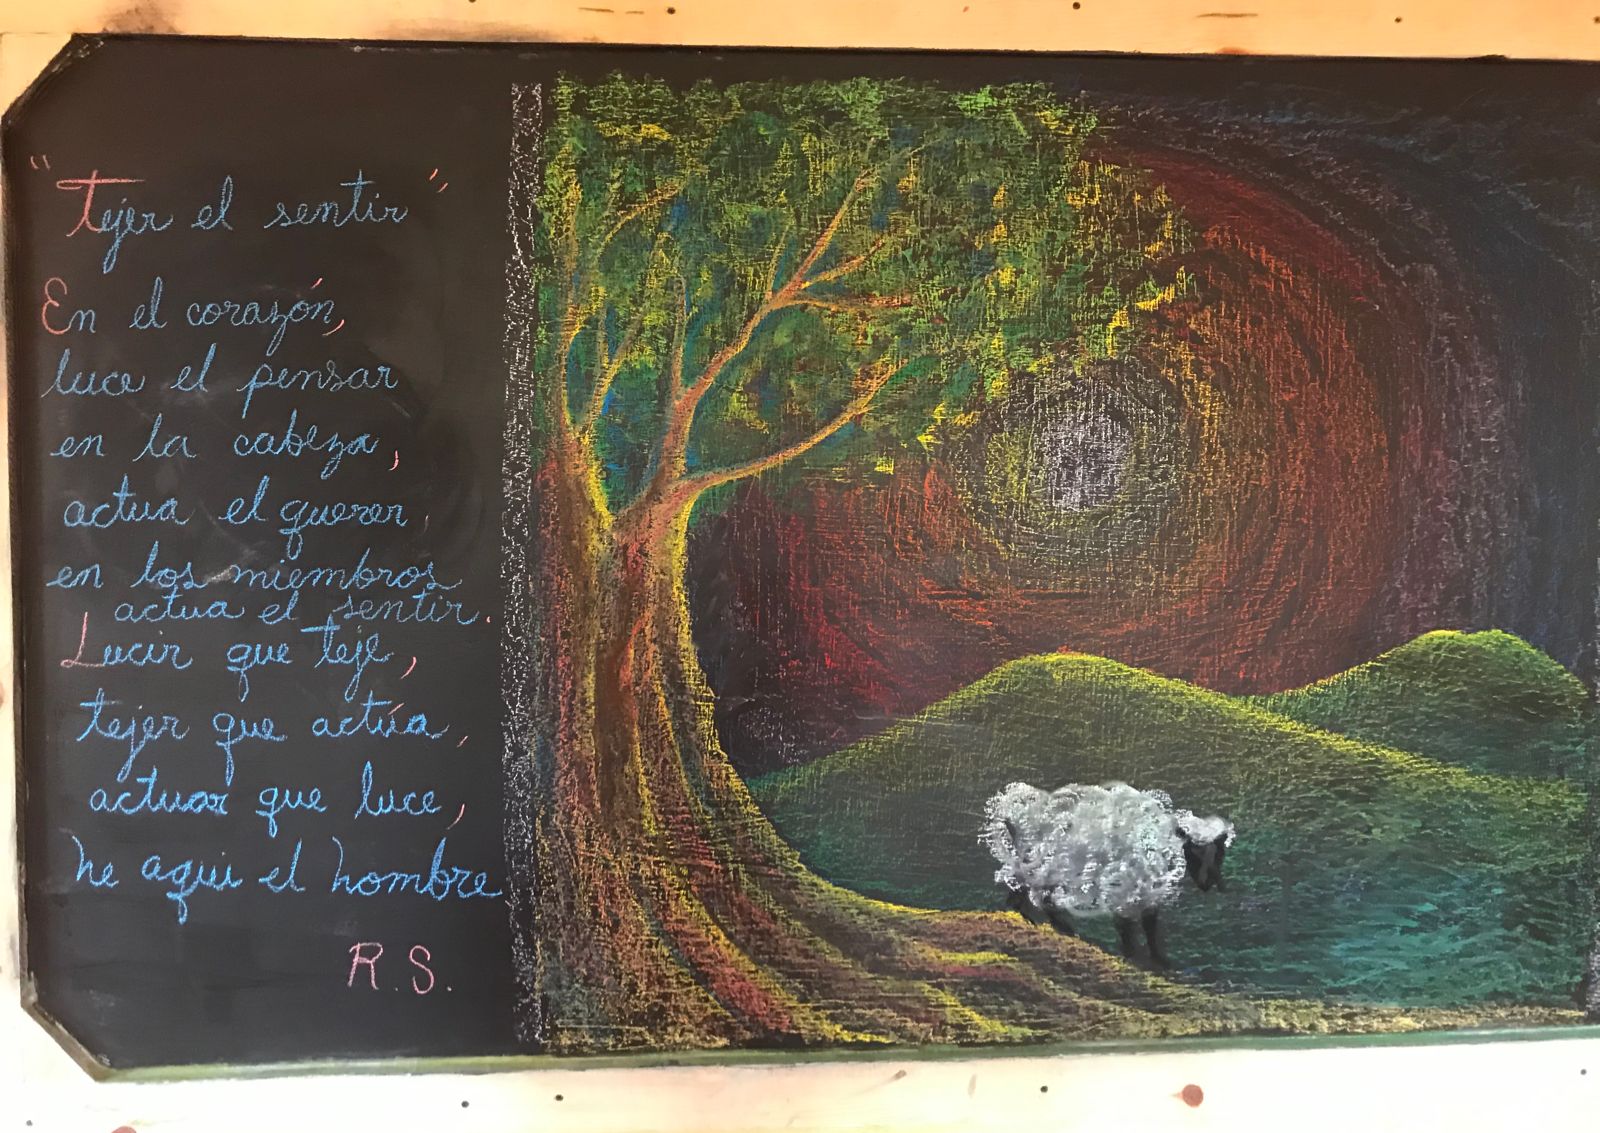 "Tejer el sentir"
En el corazón,
luce el pensar
en la cabeza,
actua el querer
en los miembros
actua el sentir.
Lucir que teje,
tejer que actúa,
actuar que luce,
he aqui el hombre
R.S.